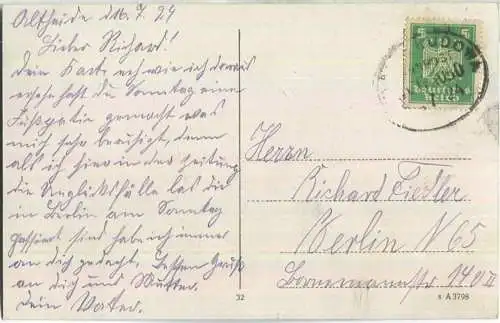 Altheide d. 16. 7. 24
Lieber Richard!
Dein Karte erh wie ich daraus
ersehe hast du Sonntag eine
Fußpartie gemacht was
mich sehr beruhigt, denn
als ich hier in der Zeitung
die Unglücksfälle las die
in Berlin am Sonntag
passiert sind habe ich immer
an dich gedacht. Besten Gruß
an dich und Mutter.
Dein Vater.
Deutsches
Reich
Herrn
Richard Fiedler
Berlin N 65
140
32
A 3798